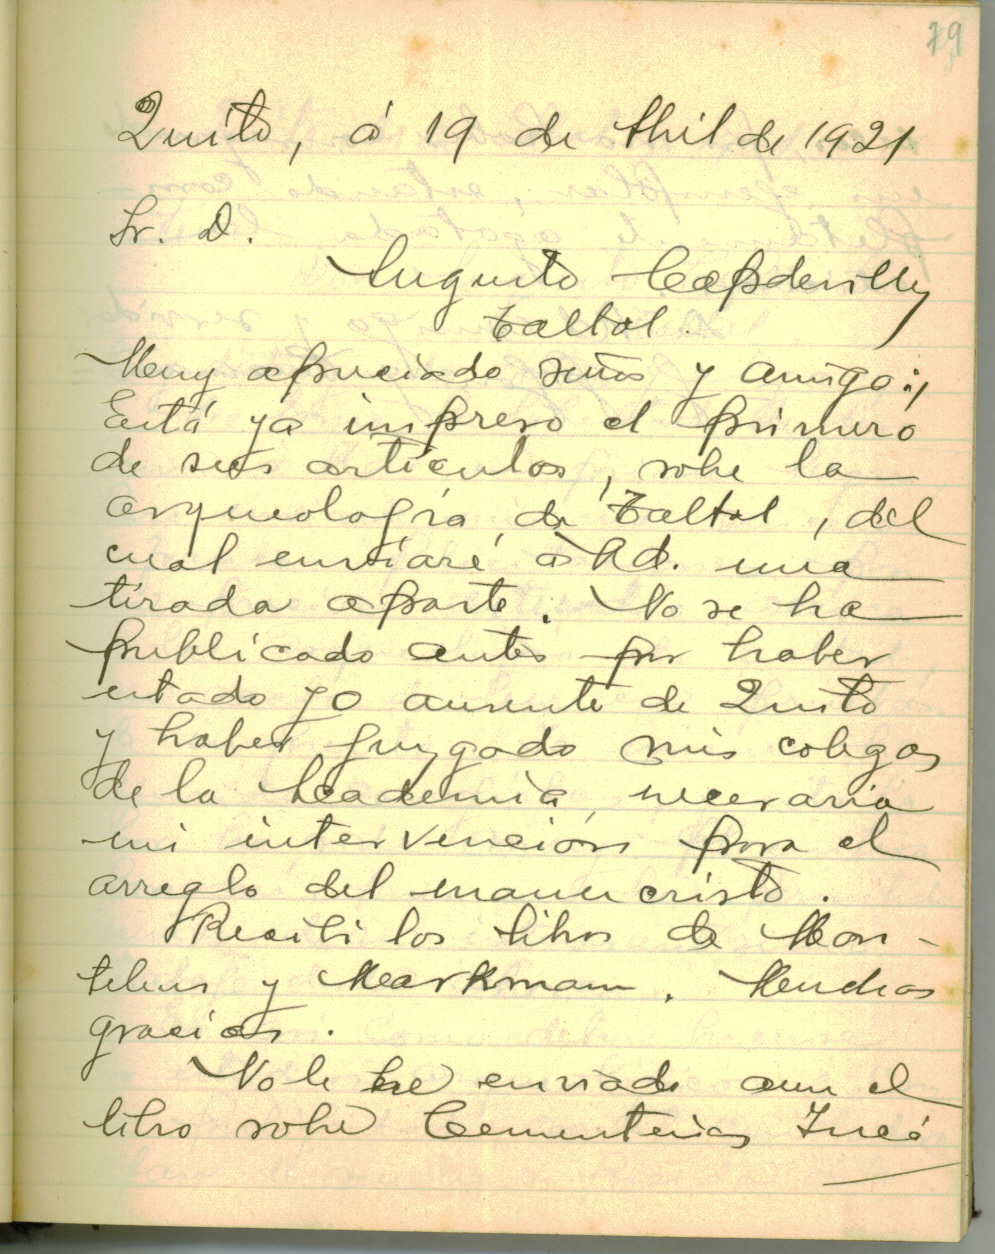 79
Quito, á 19 de Abril de 1921
Sr. D.
Augusto Capdeville
Taltal.
Muy apreciado señor y amigo:
Está ya impreso el primero
de sus artículos, sobre la
arqueología de Taltal, del
cual enviaré a Ud. una
tirada aparte. No se ha
publicado antes por haber
estado yo ausente de Quito
y haber juzgado mis colegas
de la Academia, necesaria
mi intervención para el
arreglo del manuscristo.
Recibi los libros de Mon-
telius y Markmam. Muchas
gracias.
No le he enviado aun el
libro sobre Cementerios Inca